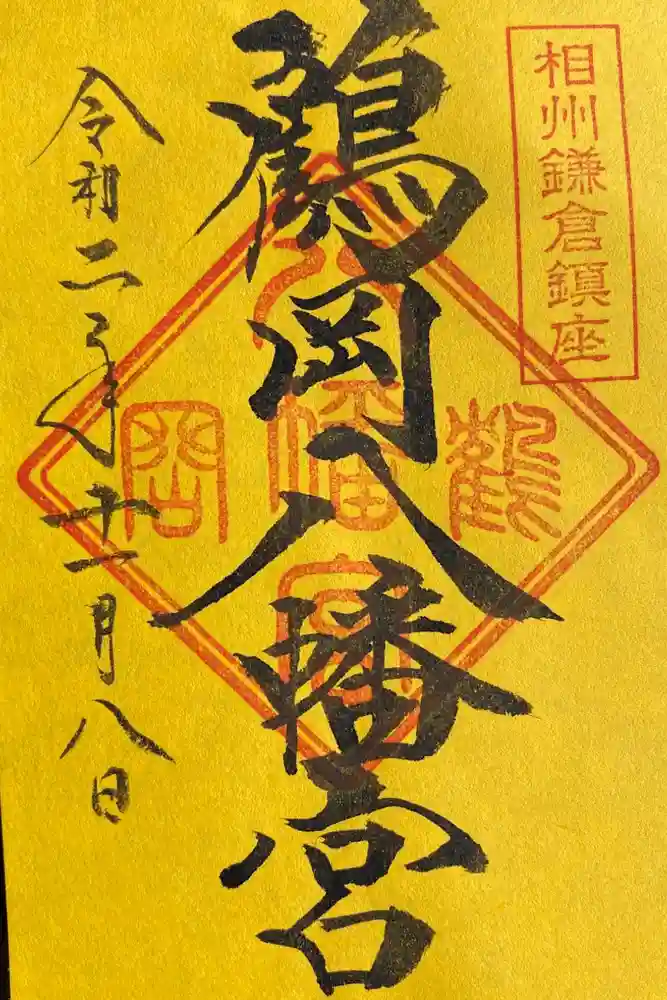 相州鎌倉鎮座
鶴岡八幡宮
鶴
八幡宮
岡
令和二年十一月八日